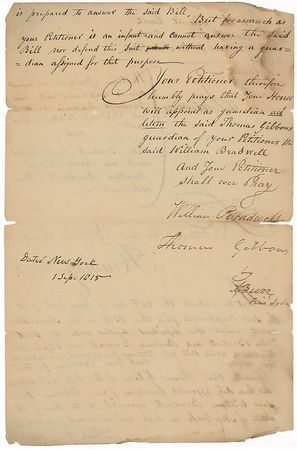 is prepared to answer the said Bill.
But forasmuch as
your Petitioner is an infant and cannot answer the said
Bill nor defend this Suit without having a guar-
dian assigned for that purpose
Your Petitioner therefore
humbly prays that Your Honor
will appoint as guardian ad
litem the said Thomas Gibbons
guardian of your Petitioner the
said William Bradwell
And Your Petitioner
shall ever Pray
William Bradwell
Thomas Gibbons
by
A Burr
Dated New York
1 Sep. 1815